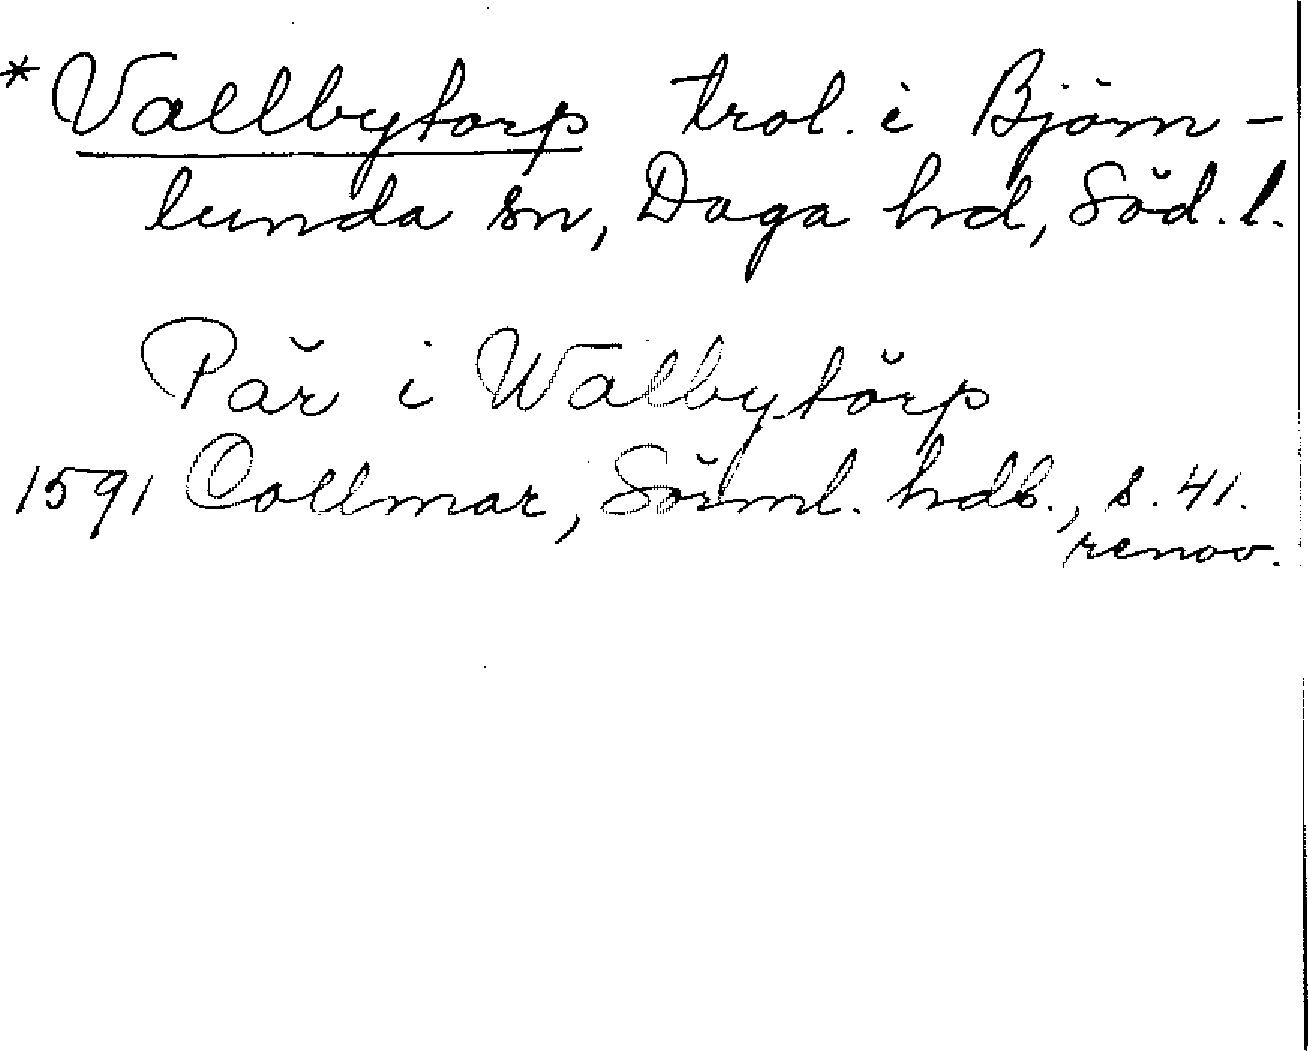 *Vallbytorp trol. i Björn-
lunda sn, Daga hd, Söd. l.
Pär i Walbytörp
1591 Collmar, Sörml. hdb., s. 41.
renov.